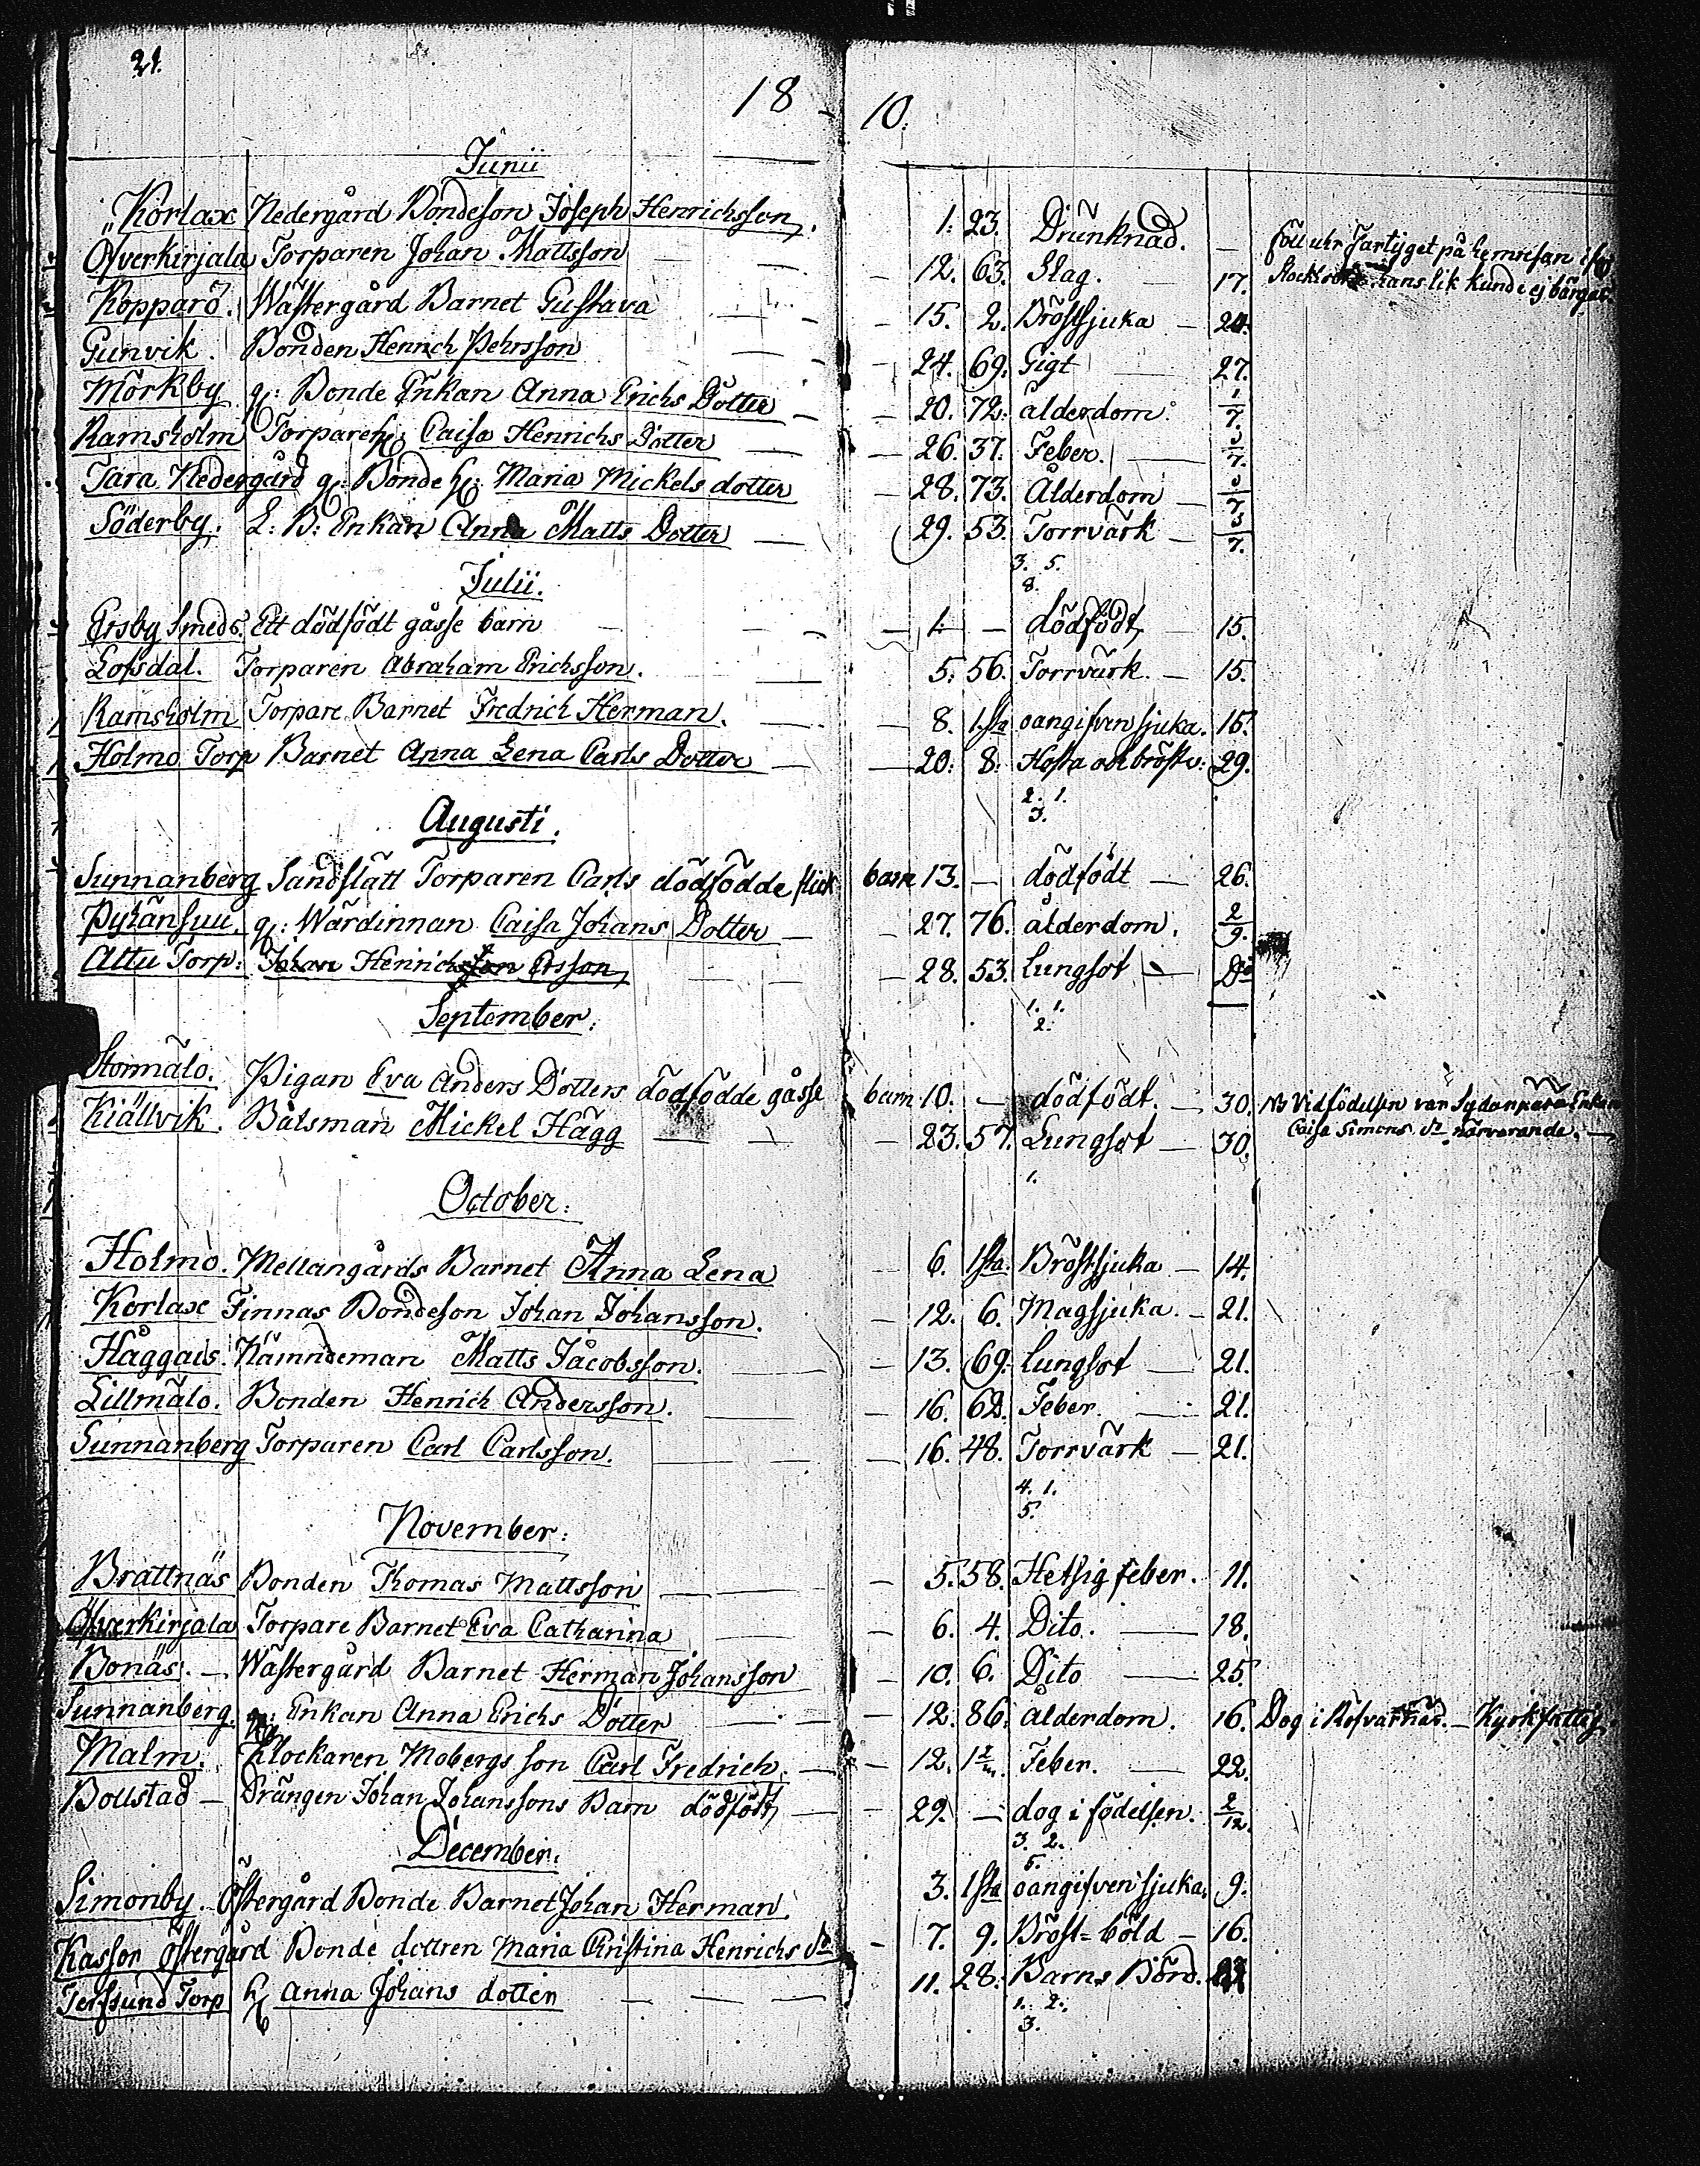 21.
18 10.
Junii
Korlax Nedergård Bondeson Joseph Henrichsson. 1. 23. Drunknad. — föll utur Fartyget på hemresan
Ofverkirjala Torparen Johan Mattsson — 12. 63. Slag. 17. Stockholm hans lik kunde ej bärgas.
Kopparö. Wästergård Barnet Gustava — 15. 2. Bröstsjuka — 20.
Gunvik. Bonden Henrich Pehrsson — 24. 69. Gigt 27.
Mörkby g: Bonde Enkan Anna Erichs Dotter — 20. 72. ålderdom. 1/7.
Ramsholm Torpareh: Caisa Henrichs Dotter — 26. 37. Feber. — 3/7.
Tara Nedergård g: Bonde h: Maria Mickels dotter — 28. 73. Ålderdom — 3/7
Söderby. L: B: Enkan Anna Matts Dotter — 29. 53. Torrvärk — 3/7.
3. 5.
8.
Julii.
Ersby Smeds. Ett dödfödt gåsse barn — 1. — dödfödt, — 15.
Lofsdal. Torparen Abraham Erichsson. — 5. 56. Torrvärk. — 15.
Ramsholm Torpare Barnet Fredrich Herman. — 8. 1sta oangifven sjuka. 15.
Holmo Torp Barnet Anna Lena Carls Dotter — 20. 8. Hosta och bröstv: 29.
2. 1.
3.
Augusti.
Sunnanberg Sandslätt Torparen Carls dödfödde flick barn 13. — dödfödt — 26.
Pyhänsuu. g: Wärdinnan Caisa Johans Dotter — 27. 76. ålderdom. 2/9.
Attu Torp: Johan Henrichsson Ersson — 28. 53. Lungsot — Do
1. 1.
2.
September.
Stormälo. Pigan Eva Anders Dotters dödfödde gåsse barn 10. — dödfödt. — 30. NB Vid födelsen var Sydänperä Enkan
Kiällvik. Båtsman Mickel Hägg — 23. 57. Lungsot — 30. Caisa Simons dr närvarande. —
1.
October:
Holmo. Mellangårds Barnet Anna Lena — 6. 1sta. Bröstsjuka — 14.
Korlax Finnas Bondeson Johan Johansson. — 12. 6. Magsjuka. — 21.
Håggais. Nämndeman Matts Jacobsson. — 13. 69. Lungsot — 21.
Lillmälo. Bonden Henrich Andersson. — 16. 62. Feber. — 21.
Sunnanberg Torparen Carl Carlsson. — 16. 48. Torrvärk — 21.
4. 1.
5.
November:
Brattnäs Bonden Thomas Mattsson — 5. 58. Hetsig feber. 11.
Öfverkirjala Torpare Barnet Eva Catharina — 6. 4. Dito. — 18.
Bonäs. — Wästergård Barnet Herman Johansson — 10. 6. Dito — 25.
Sunnanberg. g: Enkan Anna Erichs Dotter — 12. 86. ålderdom. 16. Dog i Rofvarnäs. — Kyrkfattig.
Malm. Klockaren Mobergs son Carl Fredrich. — 12. 1 2/m. Feber. — 22.
Bollstad — Drängen Johan Johanssons Barn dödfödt, — 29. — dog i födelsen. 2/12.
3. 2.
5.
December.
Simonby. Östergård Bonde Barnet Johan Herman. 3. 1sta oangifven sjuka. 9.
Kassor Östergård Bonde dottren Maria Christina Henrichs dr — 7. 9. Bröst=böld — 16.
Terfsund Torp h: Anna Johans dotter — 11. 28. Barns Börd.
1. 2.
3.